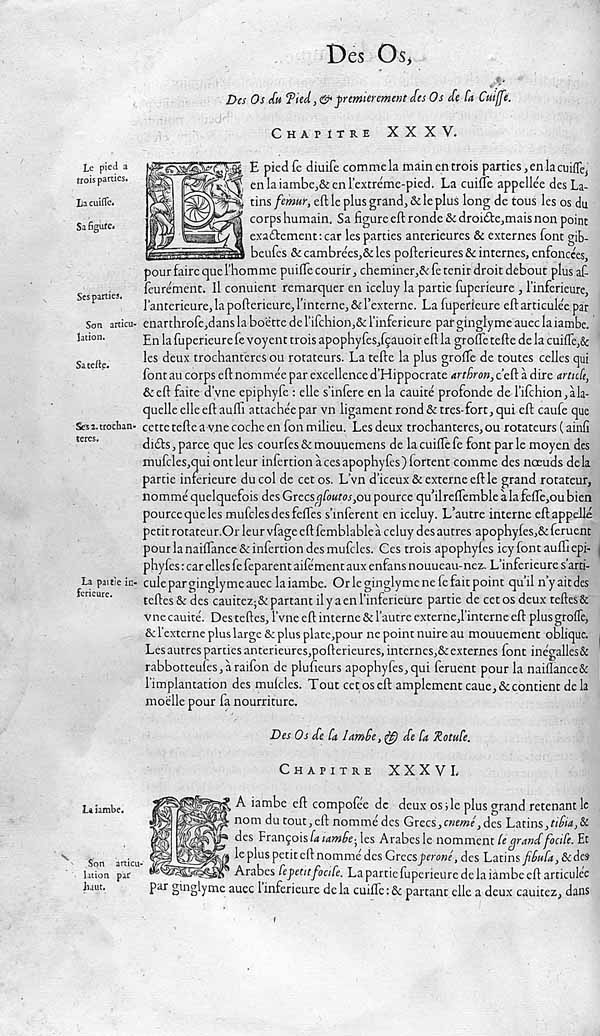 Des Os,
Des Os du Pied, & premierement des Os de la Cuiſſe.
CHAPITRE XXXV.
Le pied a
trois parties.
La cuiſſe.
Sa figure.
Ses parties.
Son articu-
lation.
Sa teſte.
Ses 2. trochan-
teres.
La partie in-
ferieure.
LE pied ſe diuiſe comme la main en trois parties, en la cuiſſe,
en la iambe, & en l'extréme-pied. La cuiſſe appellée des La-
tins femur, eſt le plus grand, & le plus long de tous les os du
corps humain. Sa figure eſt ronde & droicte, mais non point
exactement: car les parties anterieures & externes ſont gib-
beuſes & cambrées, & les poſterieures & internes, enfoncées,
pour faire que l'homme puiſſe courir, cheminer, & ſe tenir droit debout plus aſ-
ſeurément. Il conuient remarquer en iceluy la partie ſuperieure, l'inferieure,
l'anterieure, la poſterieure, l'interne, & l'externe. La ſuperieure eſt articulée par
enarthroſe, dans la boëtte de l'iſchion, & l'inferieure par ginglyme auec la iambe.
En la ſuperieure ſe voyent trois apophyſes, ſçauoir eſt la groſſe teſte de la cuiſſe, &
les deux trochanteres ou rotateurs. La teſte la plus groſſe de toutes celles qui
ſont au corps eſt nommée par excellence d'Hippocrate arthron, c'eſt à dire article,
& eſt faite d'vne epiphyſe: elle s'inſere en la cauité profonde de l'iſchion, à la-
quelle elle eſt auſſi attachée par vn ligament rond & tres-fort, qui eſt cauſe que
cette teſte a vne coche en ſon milieu. Les deux trochanteres, ou rotateurs (ainſi
dicts, parce que les courſes & mouuemens de la cuiſſe ſe font par le moyen des
muſcles, qui ont leur inſertion à ces apophyſes) ſortent comme des nœuds de la
partie inferieure du col de cet os. L'vn d'iceux & externe eſt le grand rotateur,
nommé quelquefois des Grecs gloutos, ou pource qu'il reſſemble à la feſſe, ou bien
pource que les muſcles des feſſes s'inſerent en iceluy. L'autre interne eſt appellé
petit rotateur. Or leur vſage eſt ſemblable à celuy des autres apophyſes, & ſeruent
pour la naiſſance & inſertion des muſcles. Ces trois apophyſes icy ſont auſſi epi-
phyſes: car elles ſe ſeparent aiſément aux enfans nouueau-nez. L'inferieure s'arti-
cule par ginglyme auec la iambe. Or le ginglyme ne ſe fait point qu'il n'y ait des
teſtes & des cauitez; & partant il y a en l'inferieure partie de cet os deux teſtes &
vne cauité. Des teſtes, l'vne eſt interne & l'autre externe, l'interne eſt plus groſſe,
& l'externe plus large & plus plate, pour ne point nuire au mouuement oblique.
Les autres parties anterieures, poſterieures, internes, & externes ſont inégalles &
rabbotteuſes, à raiſon de pluſieurs apophyſes, qui ſeruent pour la naiſſance &
l'implantation des muſcles. Tout cet os eſt amplement caue, & contient de la
moëlle pour ſa nourriture.
Des Os de la Iambe, & de la Rotule.
CHAPITRE XXXVI.
La iambe.
Son articu-
lation par
haut.
LA iambe eſt compoſée de deux os; le plus grand retenant le
nom du tout, eſt nommé des Grecs, cnemé, des Latins, tibia, &
des François la iambe; les Arabes le nomment le grand focile. Et
le plus petit eſt nommé des Grecs peroné, des Latins fibula, & des
Arabes le petit focile. La partie ſuperieure de la iambe eſt articulée
par ginglyme auec l'inferieure de la cuiſſe: & partant elle a deux cauitez, dans